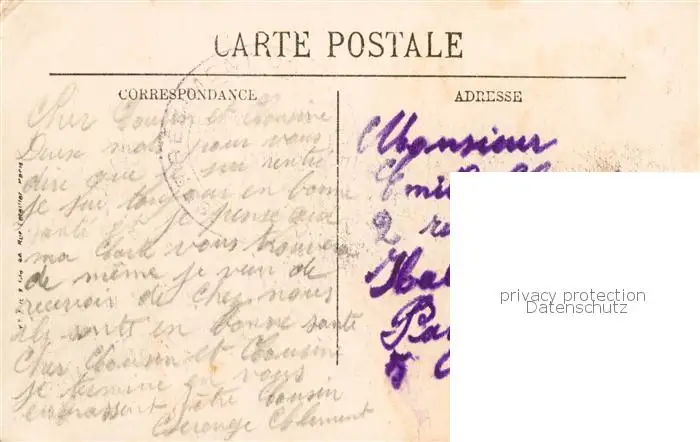 CARTE POSTALE
CORRESPONDANCE
ADRESSE
Cher Cousin et Cousine
Deux mots pour vous
dire que je sui rentré
je sui toujour en bonne
santé je pense que
ma carte vous trouvera
de même je vien de
recevoir de chez nous
ils sont en bonne santé
Cher Cousin et Cousine
je termine en vous
embrassent vôtre Cousin
Clement
Monsieur
2
5
privacy protection
Datenschutz